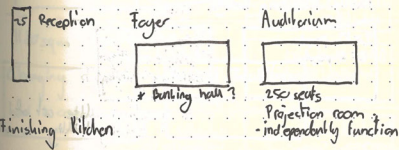 25 Reception
Foyer
Auditorium
* Bunting hall ?
250 seats
Projection room
- independently function
Finishing Kitchen